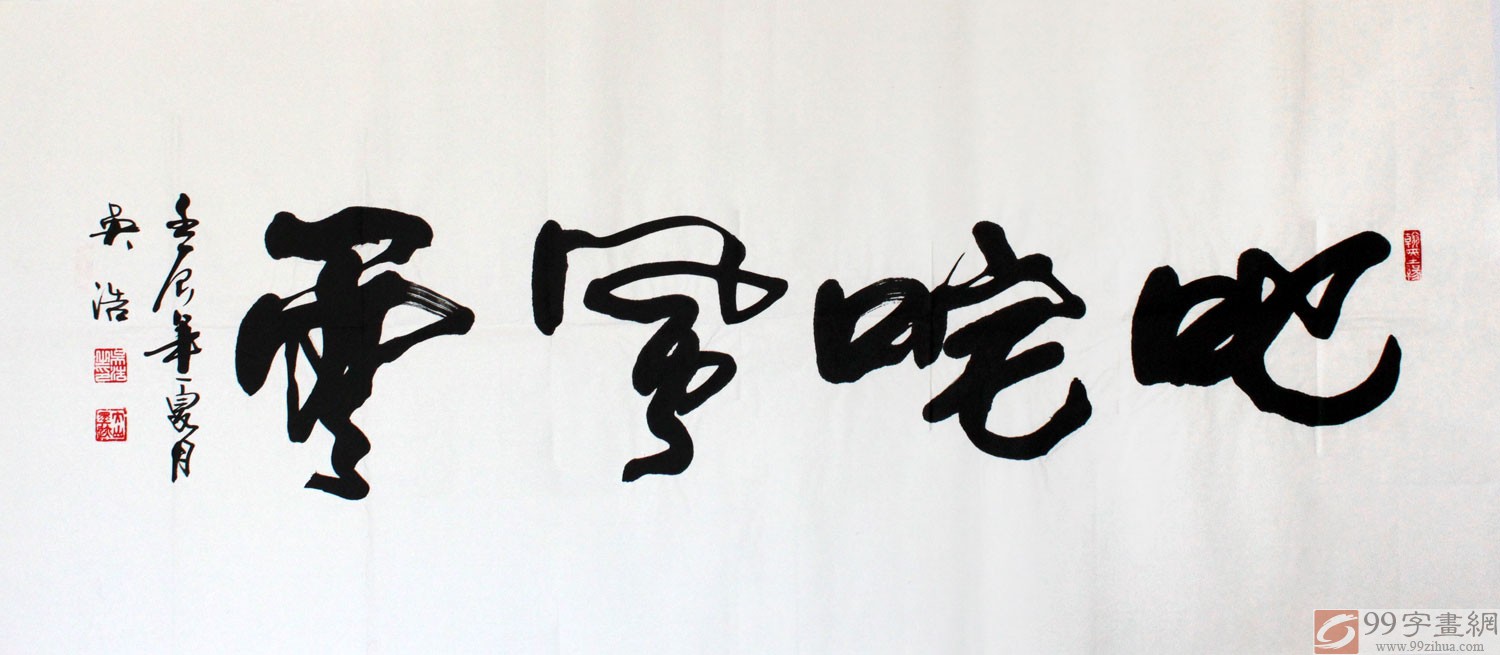 叱咤風雲
壬辰年夏月
吴浩
吴浩之印
99字畫網
www.99zihua.com